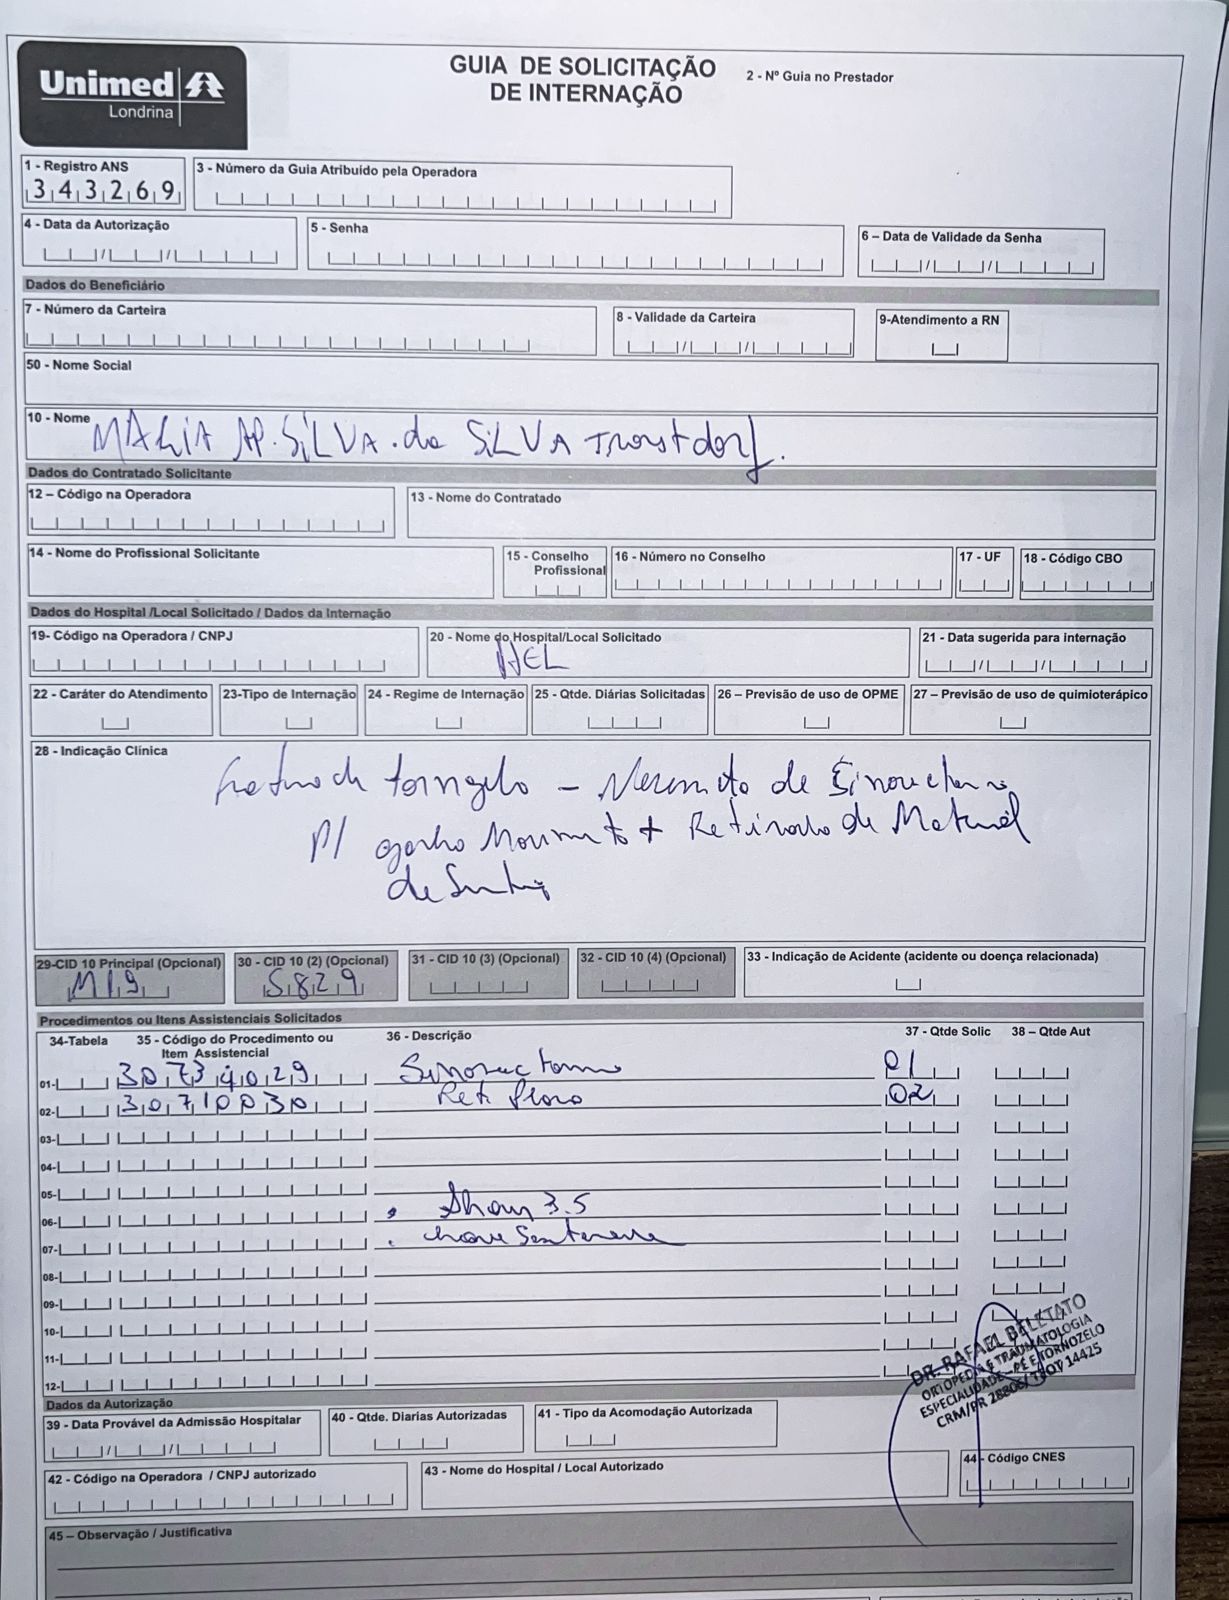 Unimed
Londrina
GUIA DE SOLICITAÇÃO
DE INTERNAÇÃO
2 - Nº Guia no Prestador
1 - Registro ANS
343269
3 - Número da Guia Atribuído pela Operadora
4 - Data da Autorização
5 - Senha
6 – Data de Validade da Senha
Dados do Beneficiário
7 - Número da Carteira
8 - Validade da Carteira
9-Atendimento a RN
50 - Nome Social
10 - Nome
MARIA AP. SILVA da SILVA
Dados do Contratado Solicitante
12 – Código na Operadora
13 - Nome do Contratado
14 - Nome do Profissional Solicitante
15 - Conselho
Profissional
16 - Número no Conselho
17 - UF
18 - Código CBO
Dados do Hospital /Local Solicitado / Dados da Internação
19- Código na Operadora / CNPJ
20 - Nome do Hospital/Local Solicitado
HEL
21 - Data sugerida para internação
22 - Caráter do Atendimento
23-Tipo de Internação
24 - Regime de Internação
25 - Qtde. Diárias Solicitadas
26 – Previsão de uso de OPME
27 – Previsão de uso de quimioterápico
28 - Indicação Clínica
de
P/ ganho + Retirada de Material
de
29-CID 10 Principal (Opcional)
M19
30 - CID 10 (2) (Opcional)
S829
31 - CID 10 (3) (Opcional)
32 - CID 10 (4) (Opcional)
33 - Indicação de Acidente (acidente ou doença relacionada)
Procedimentos ou Itens Assistenciais Solicitados
34-Tabela
35 - Código do Procedimento ou
Item Assistencial
36 - Descrição
37 - Qtde Solic
38 – Qtde Aut
01- 30734029 01
02- 30710030 02
03-
04-
05-
06- 3.5
07-
08-
09-
10-
11-
12-
DR. RAFAEL BELETATO
ORTOPEDIA E TRAUMATOLOGIA
ESPECIALIDADE - PÉ E TORNOZELO
CRM/PR 28806 / TEOT 14425
Dados da Autorização
39 - Data Provável da Admissão Hospitalar
40 - Qtde. Diarias Autorizadas
41 - Tipo da Acomodação Autorizada
42 - Código na Operadora / CNPJ autorizado
43 - Nome do Hospital / Local Autorizado
44 - Código CNES
45 – Observação / Justificativa